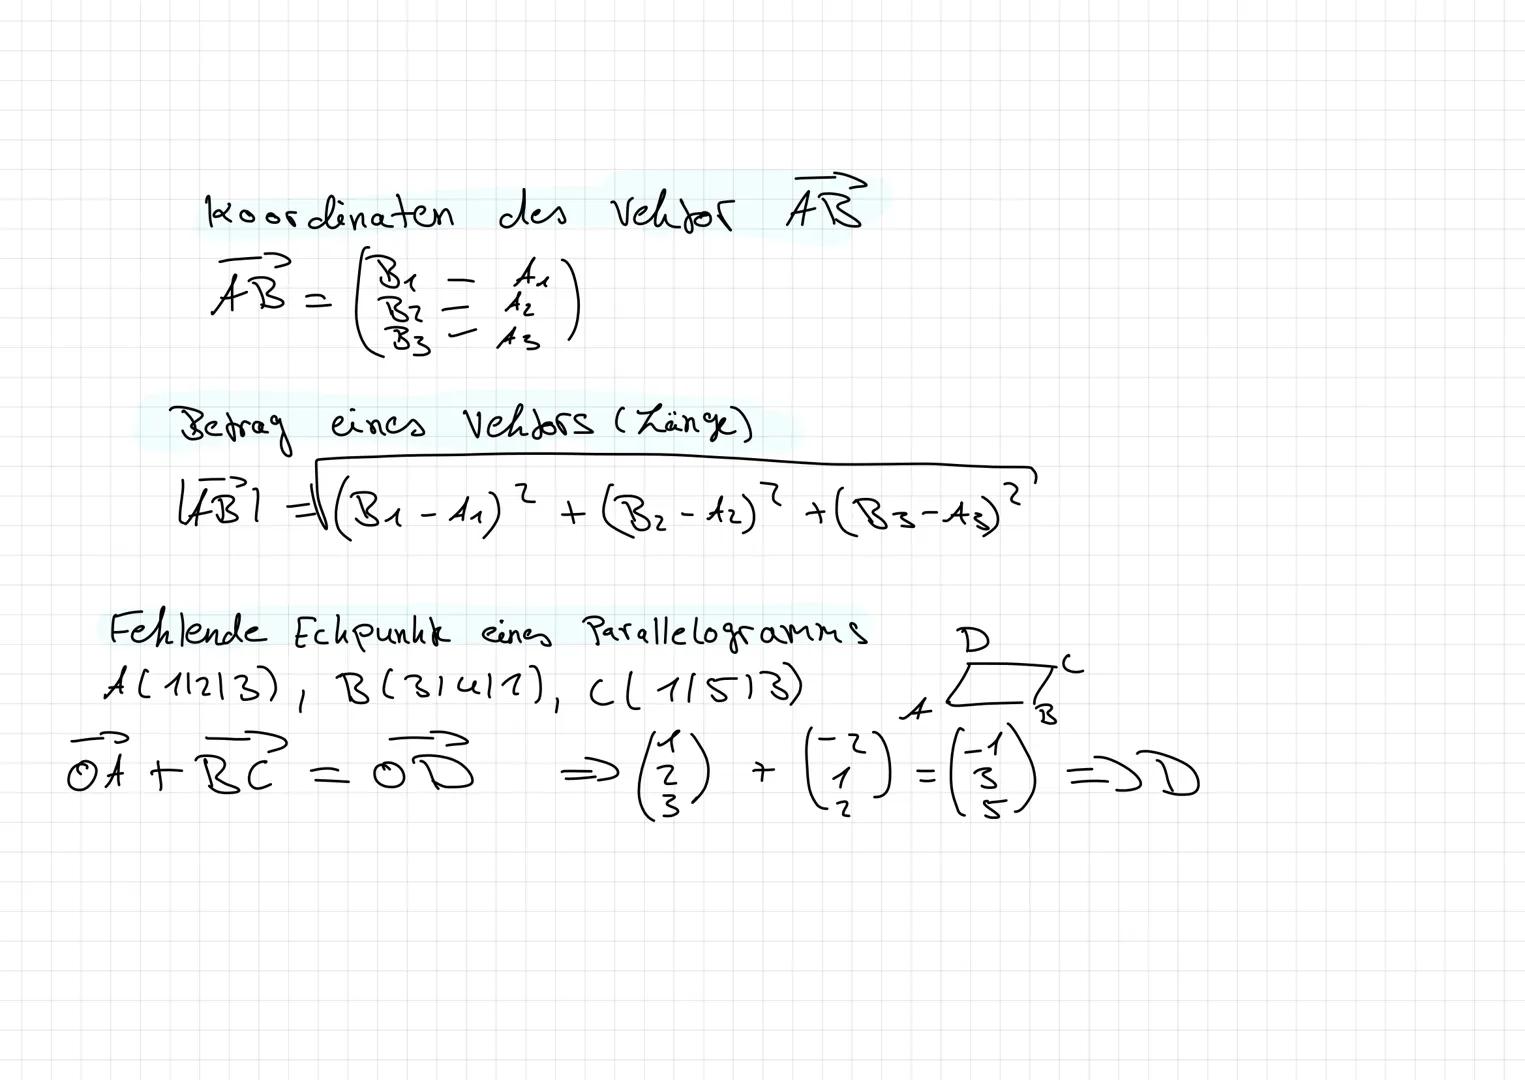 Koordinaten des Vektor \overrightarrow{AB}
\overrightarrow{AB} = \begin{pmatrix} B_1 - A_1 \\ B_2 - A_2 \\ B_3 - A_3 \end{pmatrix}
Betrag eines Vektors (Länge)
|\overrightarrow{AB}| = \sqrt{(B_1 - A_1)^2 + (B_2 - A_2)^2 + (B_3 - A_3)^2}
Fehlende Eckpunkte eines Parallelogramms
A(1|2|3), B(3|4|1), C(1|5|3)
D C
A B
\overrightarrow{OA} + \overrightarrow{BC} = \overrightarrow{OD} ⇒ \begin{pmatrix} 1 \\ 2 \\ 3 \end{pmatrix} + \begin{pmatrix} -2 \\ 1 \\ 2 \end{pmatrix} = \begin{pmatrix} -1 \\ 3 \\ 5 \end{pmatrix} ⇒ D